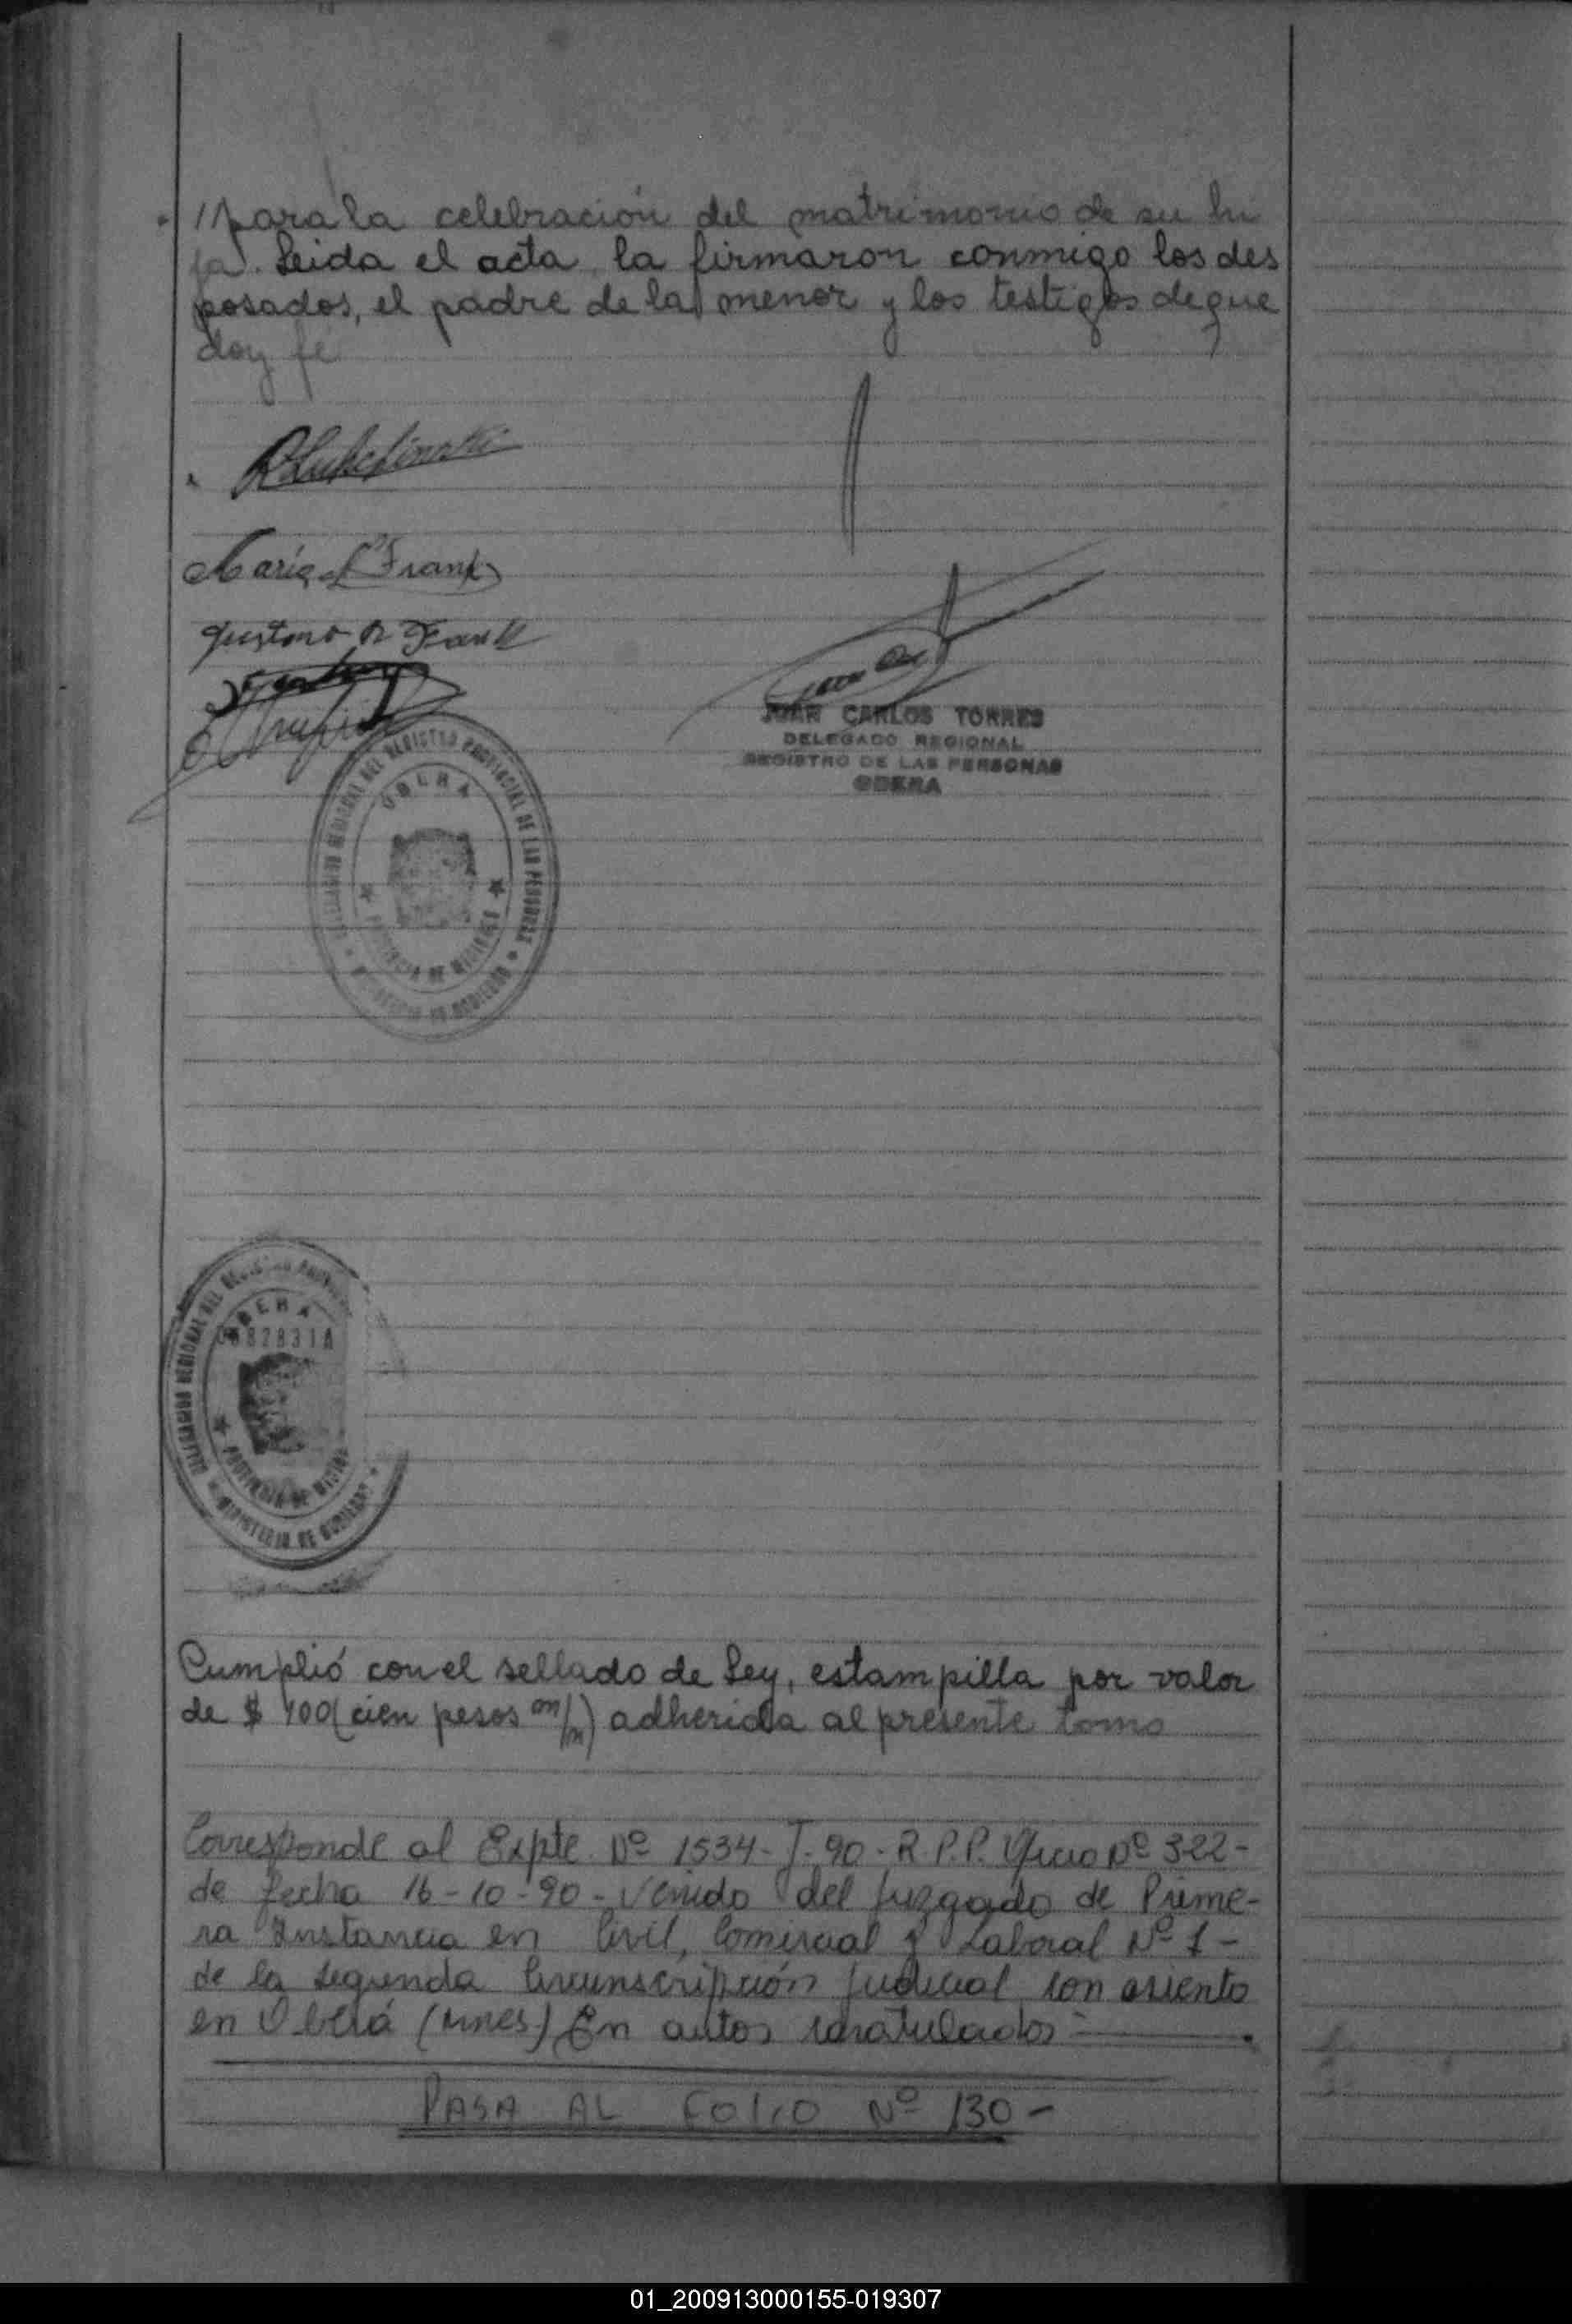 //para la celebración del matrimonio de su hi
ja. Leida el acta, la firmaron conmigo los des
posados, el padre de la menor y los testigos de que
doy fe
María L Frank
Gustavo R Frank
JUAN CARLOS TORRES
DELEGADO REGIONAL
REGISTRO DE LAS PERSONAS
OBERA
DELEGACION REGIONAL DEL REGISTRO PROVINCIAL DE LAS PERSONAS
OBERA
PROVINCIA DE MISIONES
MINISTERIO DE GOBIERNO
DELEGACION REGIONAL DEL REGISTRO
OBERA
0882831A
PROVINCIA DE MISIONES
MINISTERIO DE GOBIERNO
Cumplió con el sellado de Ley, estampilla por valor
de $ 100 (cien pesos m/n) adherida al presente tomo
Corresponde al Expte. Nº 1534-J-90-R.P.P. Oficio Nº 322-
de fecha 16-10-90- venido del Juzgado de Prime-
ra Instancia en Civil, Comercial y Laboral Nº 1-
de la segunda Circunscripción Judicial con asiento
en Oberá (Mnes) En autos caratulados-
PASA AL FOLIO Nº 130-
01_200913000155-019307